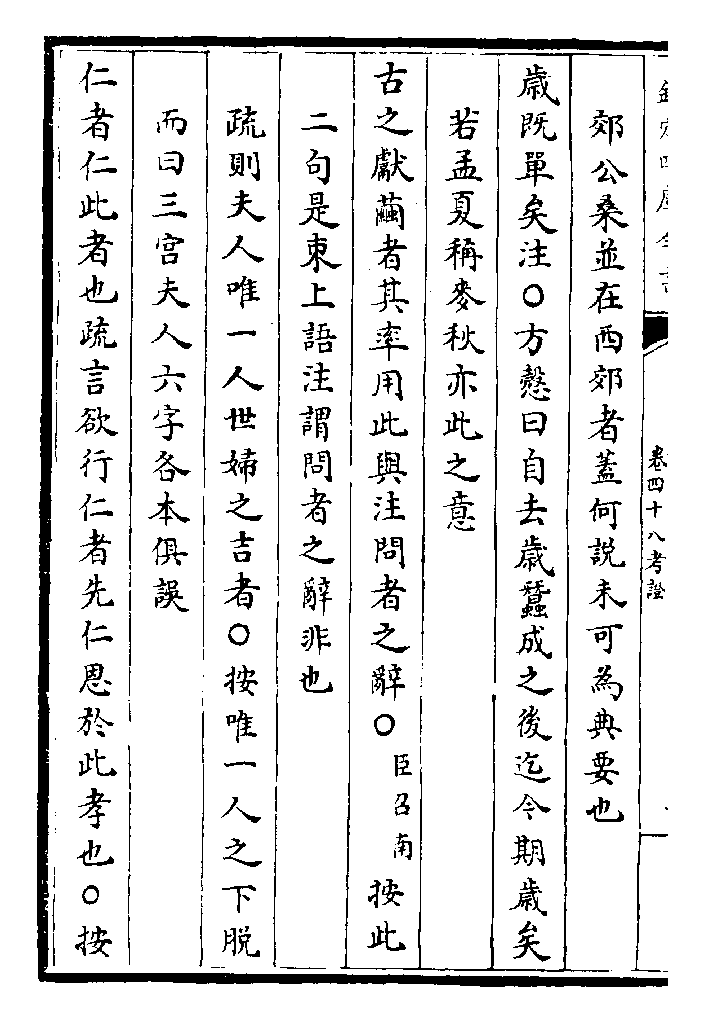 欽定四庫全書
卷四十八考證
郊公桑並在西郊者蓋何說未可為典要也
歲既單矣注○方慤曰自去歲蠶成之後迄今期歲矣
若孟夏稱麥秋亦此之意
古之獻繭者其率用此與注問者之辭○臣召南按此
二句是束上語注謂問者之辭非也
疏則夫人唯一人世婦之吉者○按唯一人之下脫
而曰三宮夫人六字各本俱誤
仁者仁此者也疏言欲行仁者先仁恩於此孝也○按